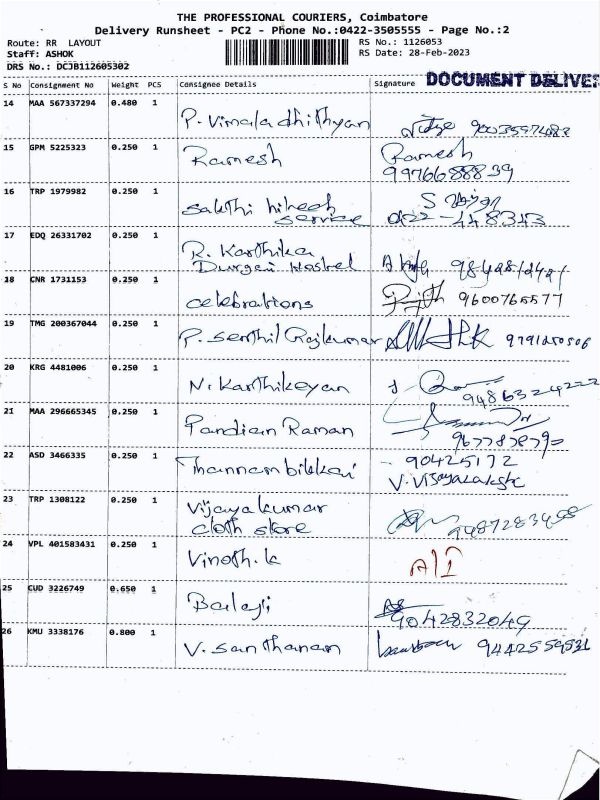 THE PROFESSIONAL COURIERS, Coimbatore
Delivery Runsheet - PC2 - Phone No.:0422-3505555 - Page No.:2
Route: RR LAYOUT
RS No.: 1126053
Staff: ASHOK
RS Date: 28-Feb-2023
DRS No.: DCJB112605302
S No Consignment No Weight PCS Consignee Details Signature DOCUMENT DELIVE
14 MAA 567337294 0.480 1
P. Vimaladhithyan
15 GPM 5225323 0.250 1
Ramesh Ramesh
9976688839
16 TRP 1979982 0.250 1
Sakthi hitech
service 0422-448343
17 EDQ 26331702 0.250 1
R. Karthika
Durgai Hostel
18 CNR 1731153 0.250 1
celebrations 9600765577
19 TMG 200367044 0.250 1
P. Senthil Rajkumar 9791250506
20 KRG 4481006 0.250 1
N. Karthikeyan 9486324222
21 MAA 296665345 0.250 1
Pandian Raman
22 ASD 3466335 0.250 1
90425172
Thannambikkai
23 TRP 1308122 0.250 1
Vijayakumar
cloth store
24 VPL 401583431 0.250 1
Vinoth.k A/I
25 CUD 3226749 0.650 1
Balaji
9042832049
26 KMU 3338176 0.800 1
V. Santhanam 9442559531